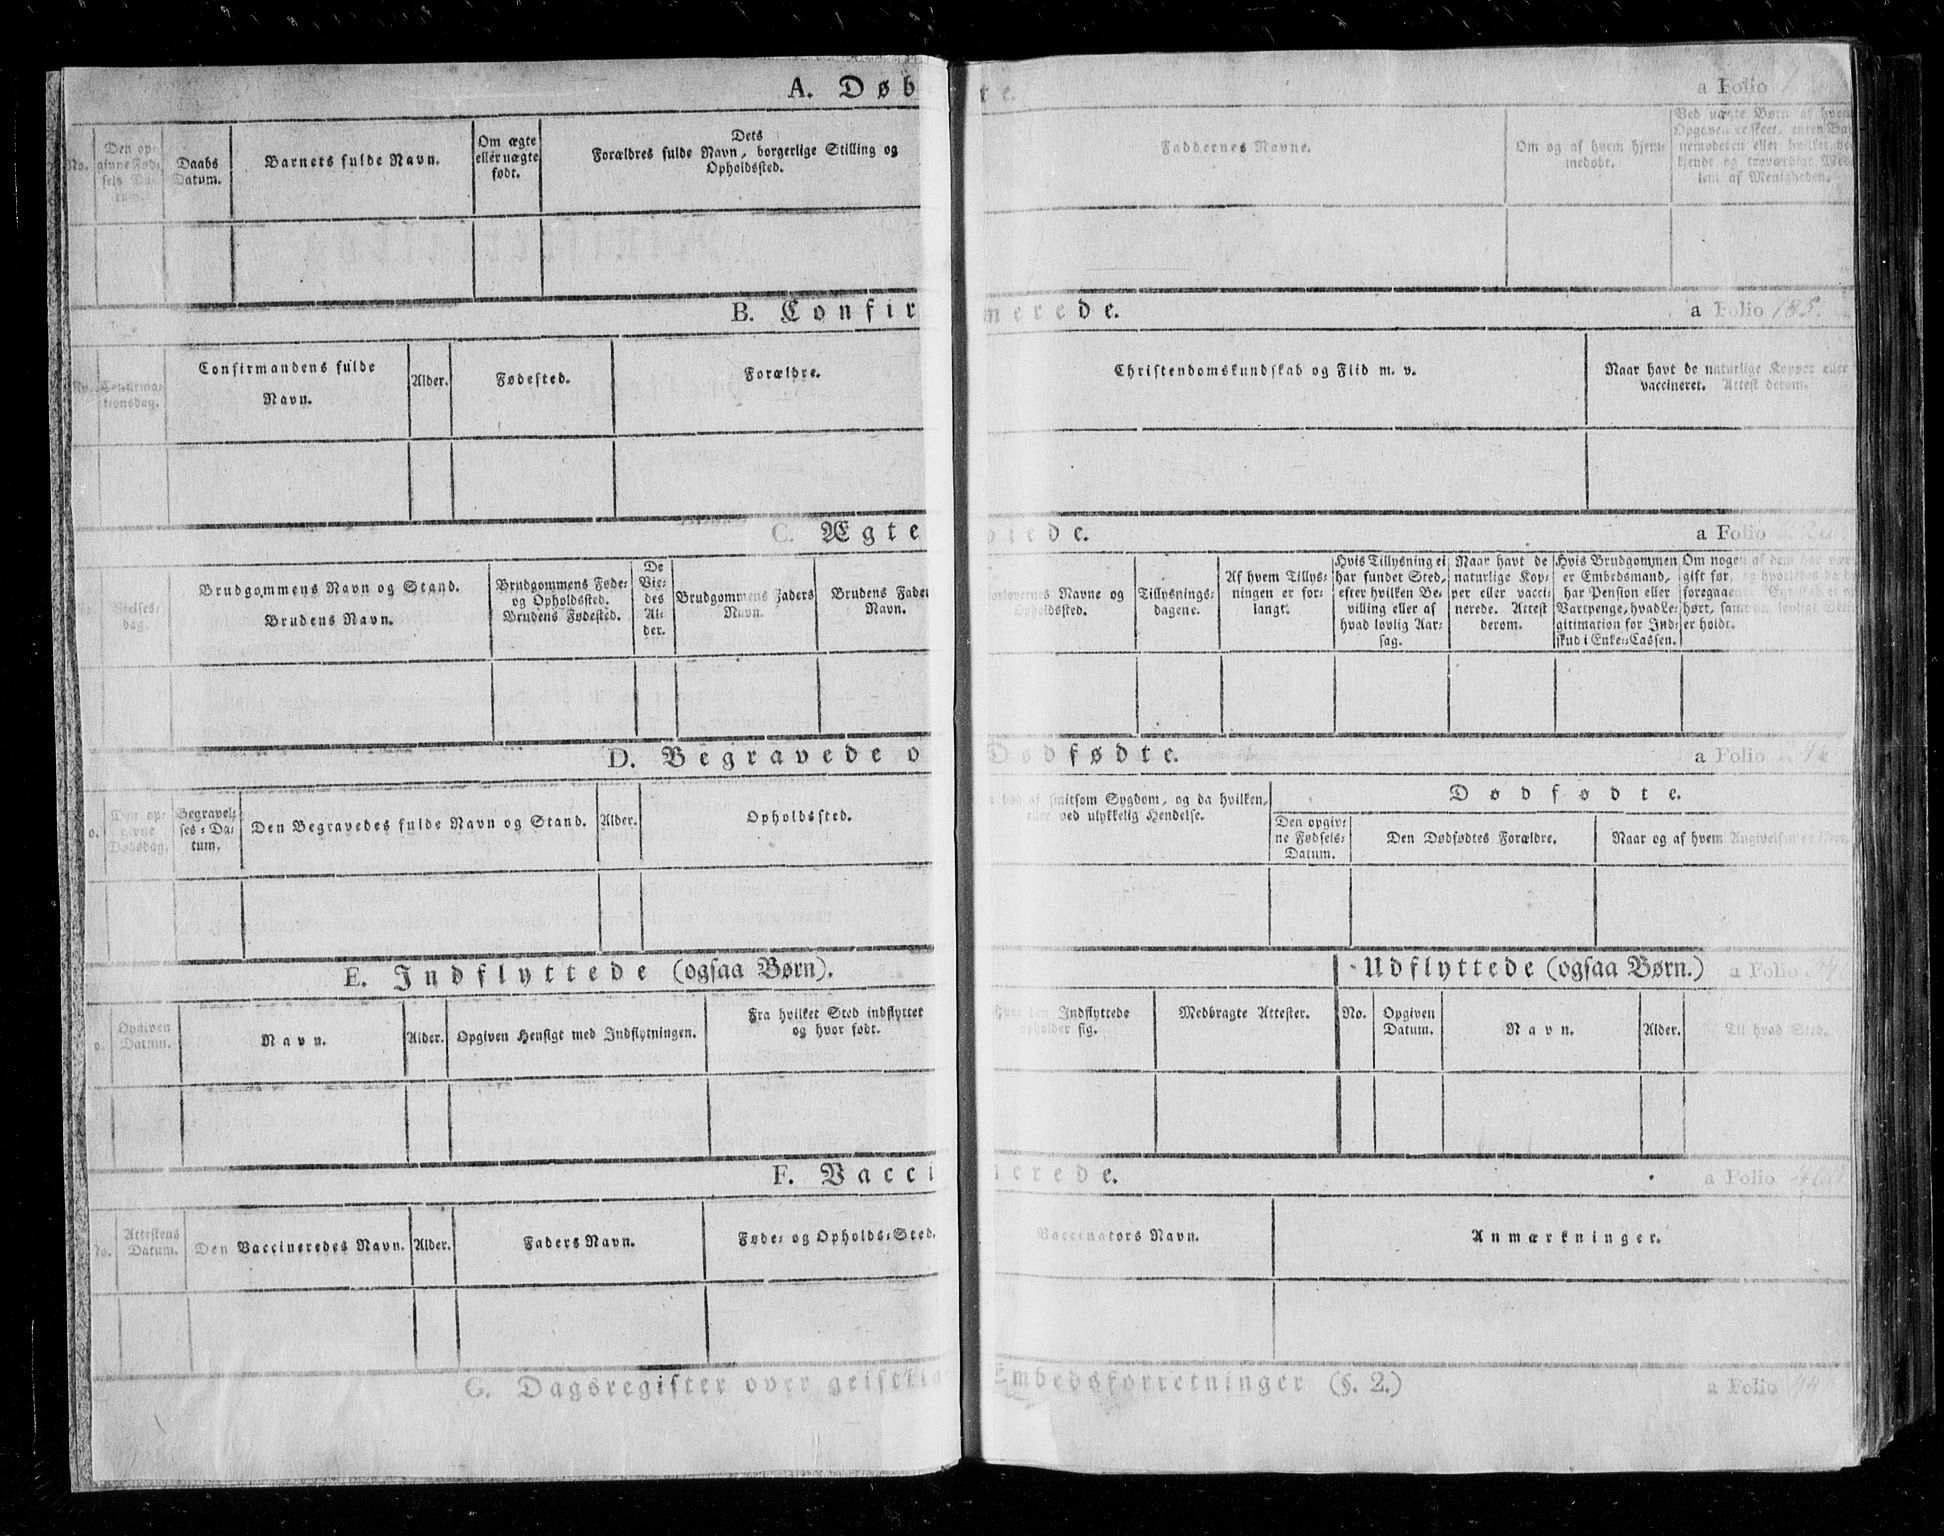 A. Døb te. a Folio
No. Den op- givne Fød- sels Da- tum. Daabs Datum. Barnets fulde Navn. Om ægte eller uægte født. Dets Forældres fulde Navn, borgerlige Stilling og Opholdssted. Faddernes Navne. Om og af hvem hjem- medøbt. Ved uægte Børn af hvem Opgaven er skeet, enten Bar- nemoderen eller hvilket be- kjendt og troværdigt Med- lem af Menigheden.
B. Confir merede. a Folio 185.
No. Confirma- tionsdag. Confirmandens fulde Navn. Alder. Fødested. Forældre. Christendomskundskab og Flid m. v. Naar havt de naturlige Kopper eller vaccineret. Attest derom.
C. Ægte viede. a Folio
Vielses- dag. Brudgommens Navn og Stand. Brudens Navn. Brudgommens Føde- og Opholdssted. Brudens Fødested. De Vie- des Al- der. Brudgommens Faders Navn. Brudens Faders Navn. Forlovernes Navne og Opholdssted. Tillysnings- dagene. Af hvem Tillys- ningen er for- langt. Hvis Tillysning ei har fundet Sted, efter hvilken Be- villing eller af hvad lovlig Aar- sag. Naar havt de naturlige Kop- per eller vacci- nerede. Attest derom. Hvis Brudgommen er Embedsmand, har Pension eller Vartpenge, hvad Le- gitimation for Ind- skud i Enke-Cassen. Om nogen af dem har været gift før, og hvorledes da det foregaaende Egteskab er op- hørt, samt om lovligt Skifte er holdt.
D. Begravede o Dødfødte. a Folio
o. Den op- givne Dødsdag. Begravel- ses-Da- tum. Den Begravedes fulde Navn og Stand. Alder. Opholdssted. død af smitsom Sygdom, og da hvilken, eller ved ulykkelig Hendelse. Dødfødte. Den opgiv- ne Fødsels- Datum. Den Dødfødtes Forældre. Naar og af hvem Angivelsen er skeet.
E. Indflyttede (ogsaa Børn). Udflyttede (ogsaa Børn.) a Folio
o. Opgiven Datum. Navn. Alder. Opgiven Hensigt med Indflytningen. Fra hvilket Sted indflyttet og hvor født. Hvor den Indflyttede opholder sig. Medbragte Attester. No. Opgiven Datum. Navn. Alder. Til hvad Sted.
F. Vacci nerede. a Folio
No. Attestens Datum. Den Vaccineredes Navn. Alder. Faders Navn. Føde- og Opholds-Sted. Vaccinators Navn. Anmærkninger.
G. Dagsregister over geistlig Embedsforretninger (§. 2.) a Folio